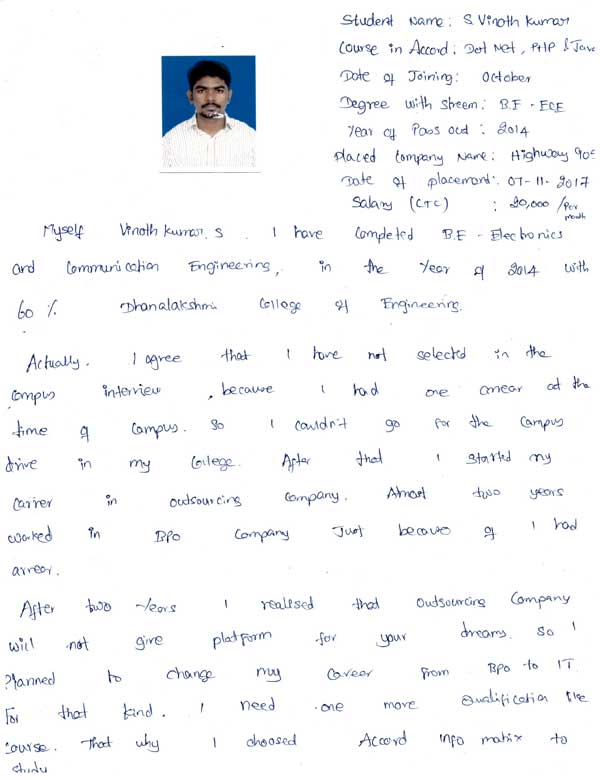 Student Name: S. Vinoth Kumar
Course in Accord: Dot Net, PHP & Java
Date of Joining: October
Degree with streem: B.E - ECE
Year of Pass out: 2014
Placed Company Name: Highway 905
Date of placement: 07-11-2017
Salary (CTC) : 20,000 /Per month
Myself Vinoth Kumar. S. I have Completed B.E - Electronics
and Communication Engineering, in the Year of 2014 with
60 % Dhanalakshmi College of Engineering.
Actually. I agree that I have not selected in the
Campus interview, because I had one arrear at the
time of campus. so I couldn't go for the campus
drive in my College. After that I started my
carrer in outsourcing Company. Atmost two years
worked in BPO Company Just because of I had
arrear.
After two Years I realised that outsourcing Company
will not give platform for your dreams. so I
Planned to change my career from BPO to IT
For that kind. I need one more Qualification like
course. That why I choosed Accord info matix to
study